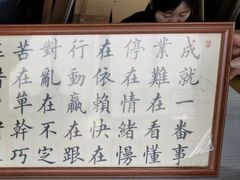 成就一番事
業難在看懂
停在情緒慢
在依賴快在
行動贏在跟
對亂在不定
苦在單幹巧